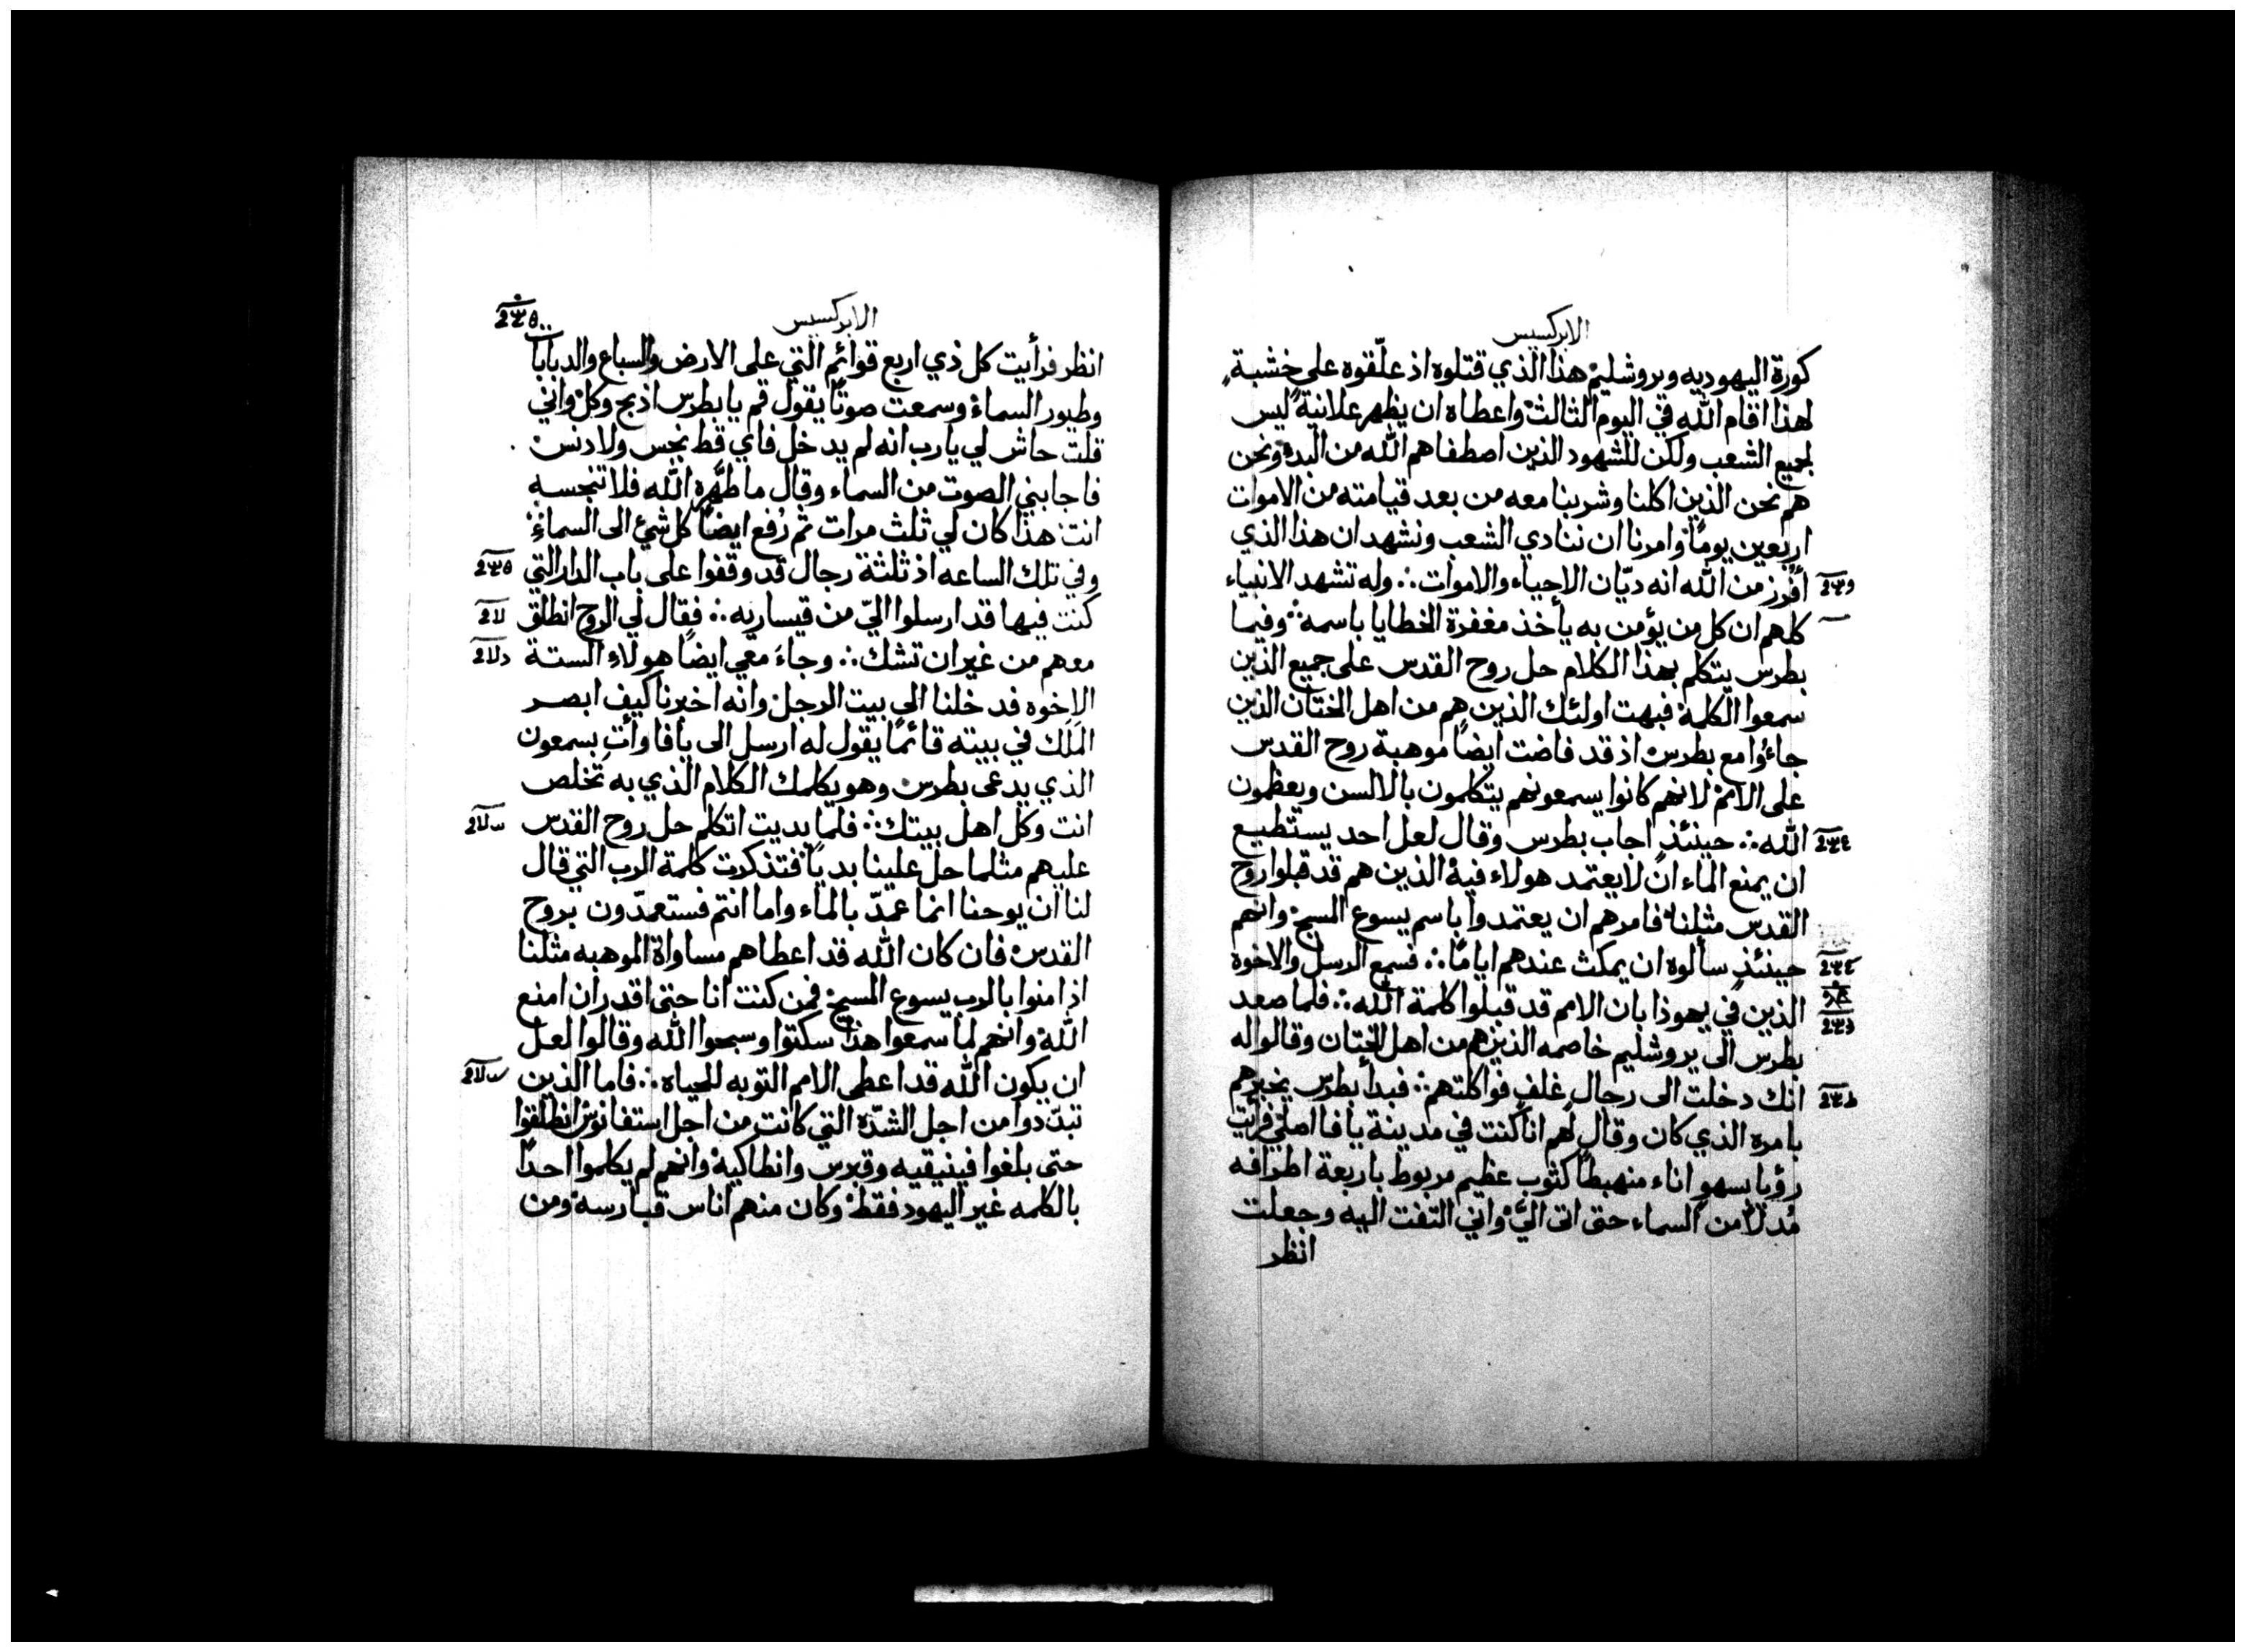 الابركسيس
كورة اليهوديه وبروشليم هذا الذي قتلوه اذ علّقوه على خشبةٍ
لهذا اقام الله في اليوم الثالث واعطاه ان يظهر علانيةً ليس
لجميع الشعب ولكن للشهود الذين اصطفاهم الله من البدء ونحن
هم نحن الذين اكلنا وشربنا معه من بعد قيامته من الاموات
اربعين يومًا وامرنا ان ننادي الشعب ونشهد ان هذا الذي
أفرز من الله انه ديّان الاحياء والاموات ∴ وله تشهد الانبياء
كلهم ان كل من يؤمن به يأخذ مغفرة الخطايا باسمه ∴ وفيما
بطرس يتكلم بهذا الكلام حل روح القدس على جميع الذين
سمعوا الكلمة فبهت اولئك الذين هم من اهل الختان الذين
جاءوا مع بطرس اذ قد فاضت ايضًا موهبة روح القدس
على الامم لانهم كانوا يسمعونهم يتكلمون بالالسن ويعظمون
الله ∴ حينئذٍ اجاب بطرس وقال لعل احد يستطيع
ان يمنع الماء ان لا يعتمد هولاء فيه الذين هم قد قبلوا روح
القدس مثلنا فامرهم ان يعتمدوا باسم يسوع المسيح وانهم
حينئذٍ سألوه ان يمكث عندهم ايامًا ∴ فسمع الرسل والاخوة
الذين في يهوذا بان الامم قد قبلوا كلمة الله ∴ فلما صعد
بطرس الى يروشليم خاصمه الذين هم من اهل الختان وقالوا له
انك دخلت الى رجال غلف فواكلتهم ∴ فبدأ بطرس يخبرهم
بامره الذي كان وقال لهم انا كنت في مدينة يافا اصلي فرأيت
رؤيا بسهوٍ اناء منهبطًا كثوب عظيم مربوط باربعة اطرافه
مُدلاً من السماء حتى اتى اليَّ واني التفت اليه وجعلت
انظر
الابركسيس
انظر فرأيت كل ذي اربع قوائم التي على الارض والسباع والدبابات
وطيور السماء وسمعت صوتًا يقول قم يا بطرس اذبح وكل واني
قلت حاش لي يا رب انه لم يدخل فاي قط نجس ولا دنس
فاجابني الصوت من السماء وقال ما طهّره الله فلا تنجسه
انت هذا كان لي ثلث مرات ثم رُفع ايضًا كل شيء الى السماء
وفي تلك الساعه اذ ثلثة رجال قد وقفوا على باب الدار التي
كنت فيها قد ارسلوا اليّ من قيساريه ∴ فقال لي الروح انطلق
معهم من غير ان تشك ∴ وجاءَ معي ايضًا هولاء الستة
الاخوه فدخلنا الى بيت الرجل وانه اخبرنا كيف ابصر
الملَك في بيته قائمًا يقول له ارسل الى يافا وأت بسمعون
الذي يدعى بطرس وهو يكلمك الكلام الذي به تخلص
انت وكل اهل بيتك ∴ فلما بديت اتكلم حل روح القدس
عليهم مثلما حل علينا بديًا فتذكرت كلمة الرب التي قال
لنا ان يوحنا انما عمدّ بالماء واما انتم فستعمدّون بروح
القدس فان كان الله قد اعطاهم مساواة الموهبه مثلنا
اذ امنوا بالرب يسوع المسيح فمن كنت انا حتى اقدر ان امنع
الله وانهم لما سمعوا هذا سكتوا وسبحوا الله وقالوا لعل
ان يكون الله قد اعطى الامم التوبه للحياه ∴ فاما الذين
تبدّدوا من اجل الشدّة التي كانت من اجل استفانوس انطلقوا
حتى بلغوا فينيقيه وقبرس وانطاكية وانهم لم يكلموا احدًا
بالكلمه غير اليهود فقط وكان منهم اناس قبارسه ومن